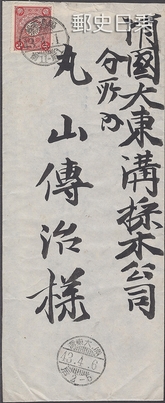 郵史日本
清國大東溝採木公司
分所内
丸山傳治様
43.4.6